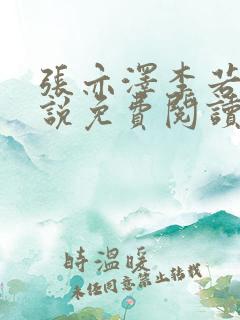 張亦澤李若
說免費閱讀
時溫暖
未經同意禁止轉載